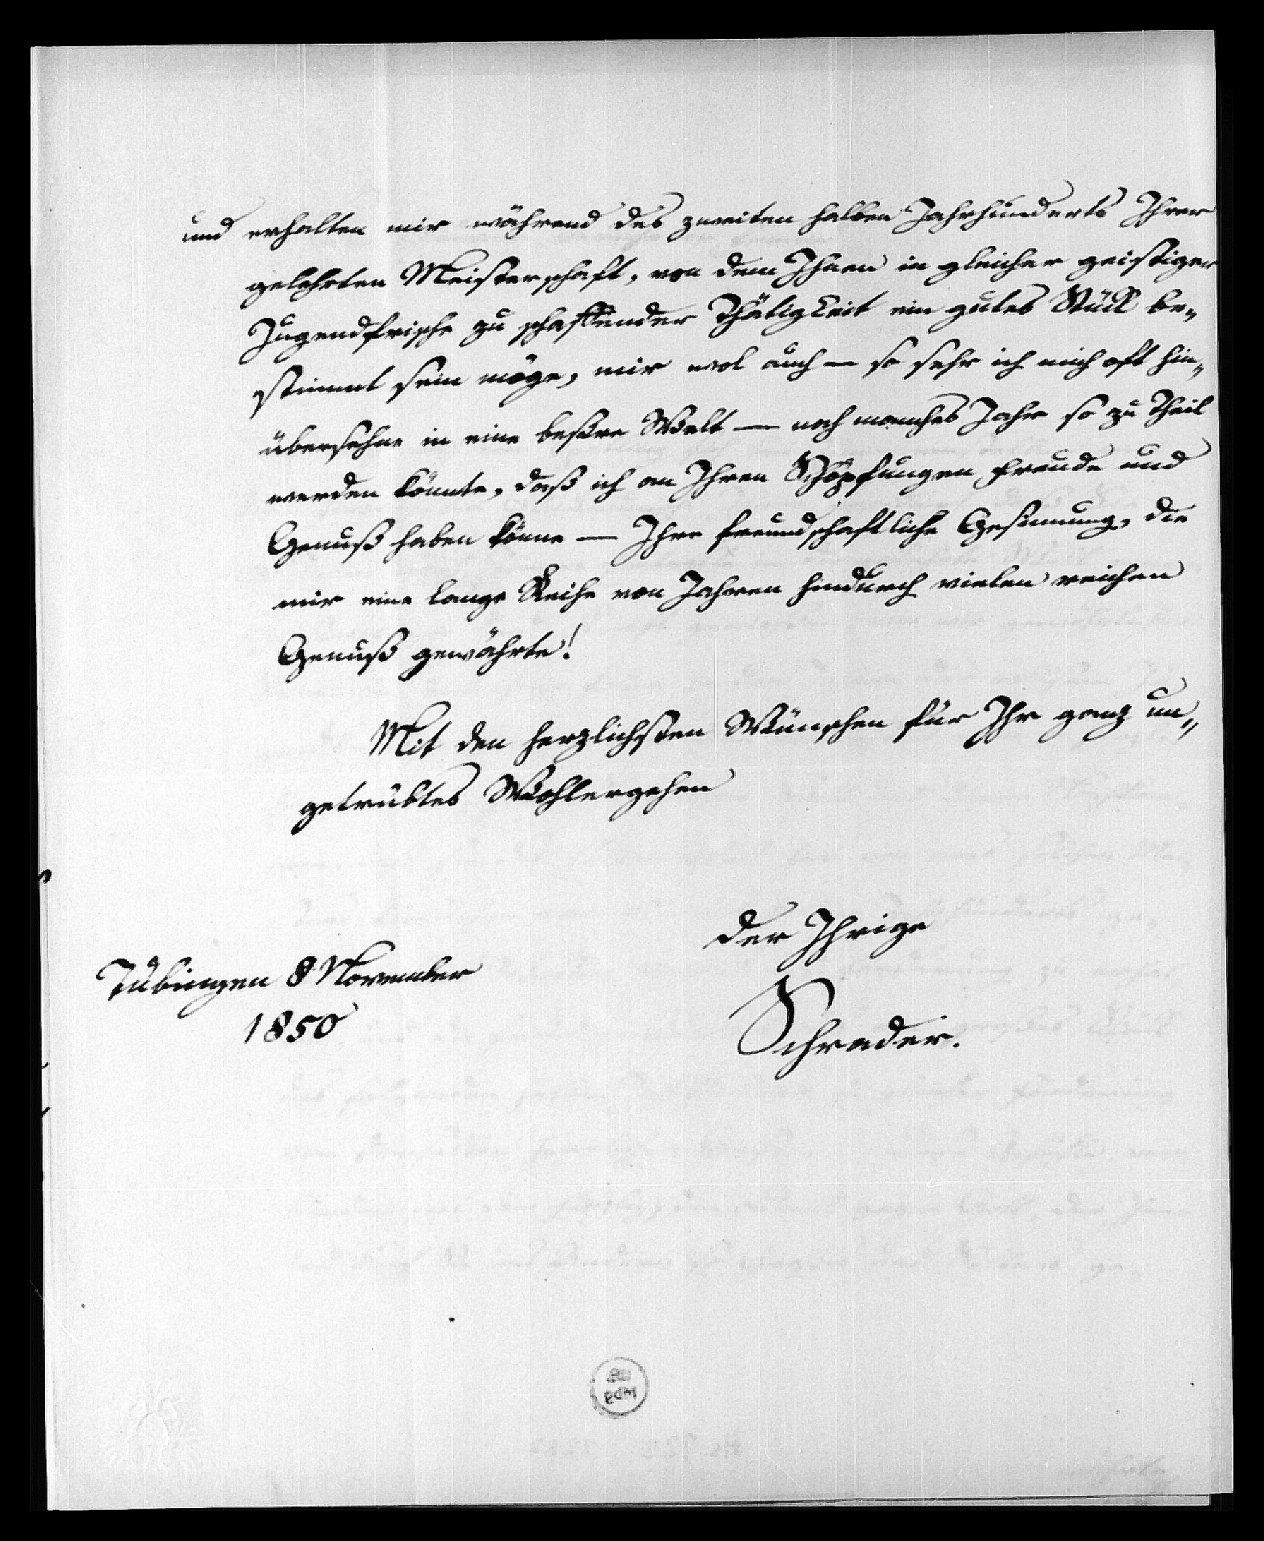 und erhalten mir während des zweiten halben Jahrhunderts Ihrer
gelehrten Meisterschaft, von dem Ihnen in gleicher geistiger
Jugendfrische zu schaffender Thätigkeit ein gutes Stück be-
stimmt sein möge, mir wol auch — so sehr ich mich oft hin-
übersehne in eine beßre Welt — noch manches Jahr so zu Theil
werden könnte, daß ich an Ihren Schöpfungen Freude und
Genuß haben könne — Ihre freundschaftliche Gesinnung, die
mir eine lange Reihe von Jahren hindurch vielen reichen
Genuß gewährte!
Mit den herzlichsten Wünschen für Ihr ganz un-
getrübtes Wohlergehen
der Ihrige
Schrader.
Tübingen 8 November
1850